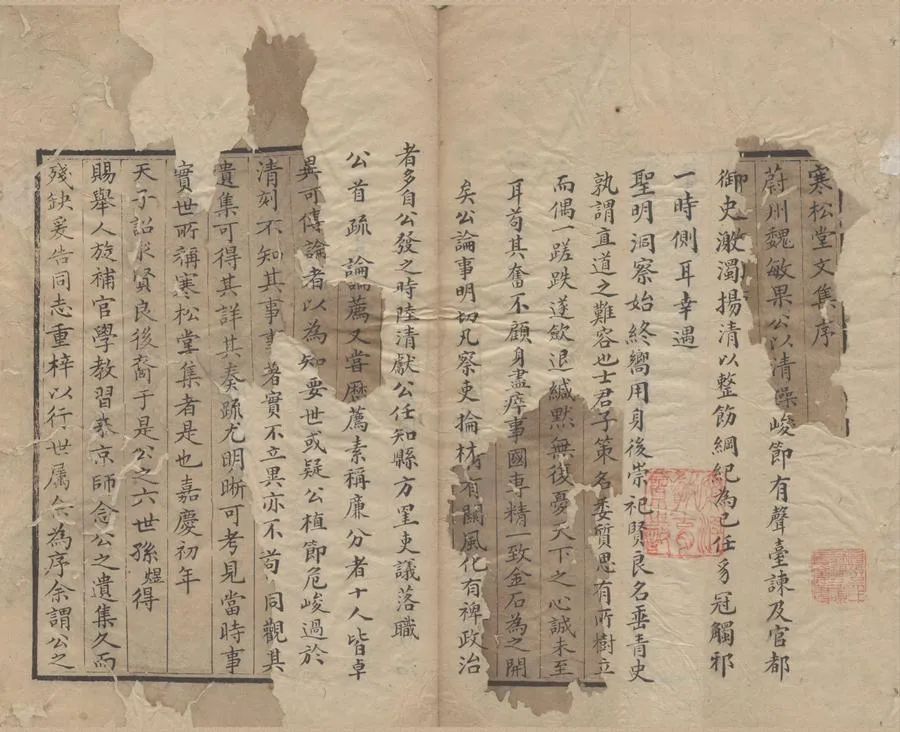 寒松堂文集序
蔚州魏敏果公以清操峻節有聲臺諫及官都
御史激濁揚清以整飭綱紀為己任豸冠觸邪
一時側耳幸遇
聖明洞察始終嚮用身後崇祀賢良名垂青史
孰謂直道之難容也士君子策名委質思有所樹立
而偶一蹉跌遂歛退緘默無復憂天下之心誠未至
耳苟其奮不顧身盡瘁事國專精一致金石為之開
矣公論事明切凡察吏掄材有關風化有裨政治
者多自公發之時陸清獻公任知縣方罣吏議落職
公首疏論薦又嘗歷薦素稱廉分者十人皆卓
異可傳論者以為知要世或疑公植節危峻過於
清刻不知其事事著實不立異亦不苟同觀其
遺集可得其詳其奏疏尤明晰可考見當時事
實世所稱寒松堂集者是也嘉慶初年
天子詔求賢良後裔于是公之六世孫煜得
賜舉人旋補官學教習來京師念公之遺集久而
殘缺爰告同志重梓以行世属余為序余謂公之